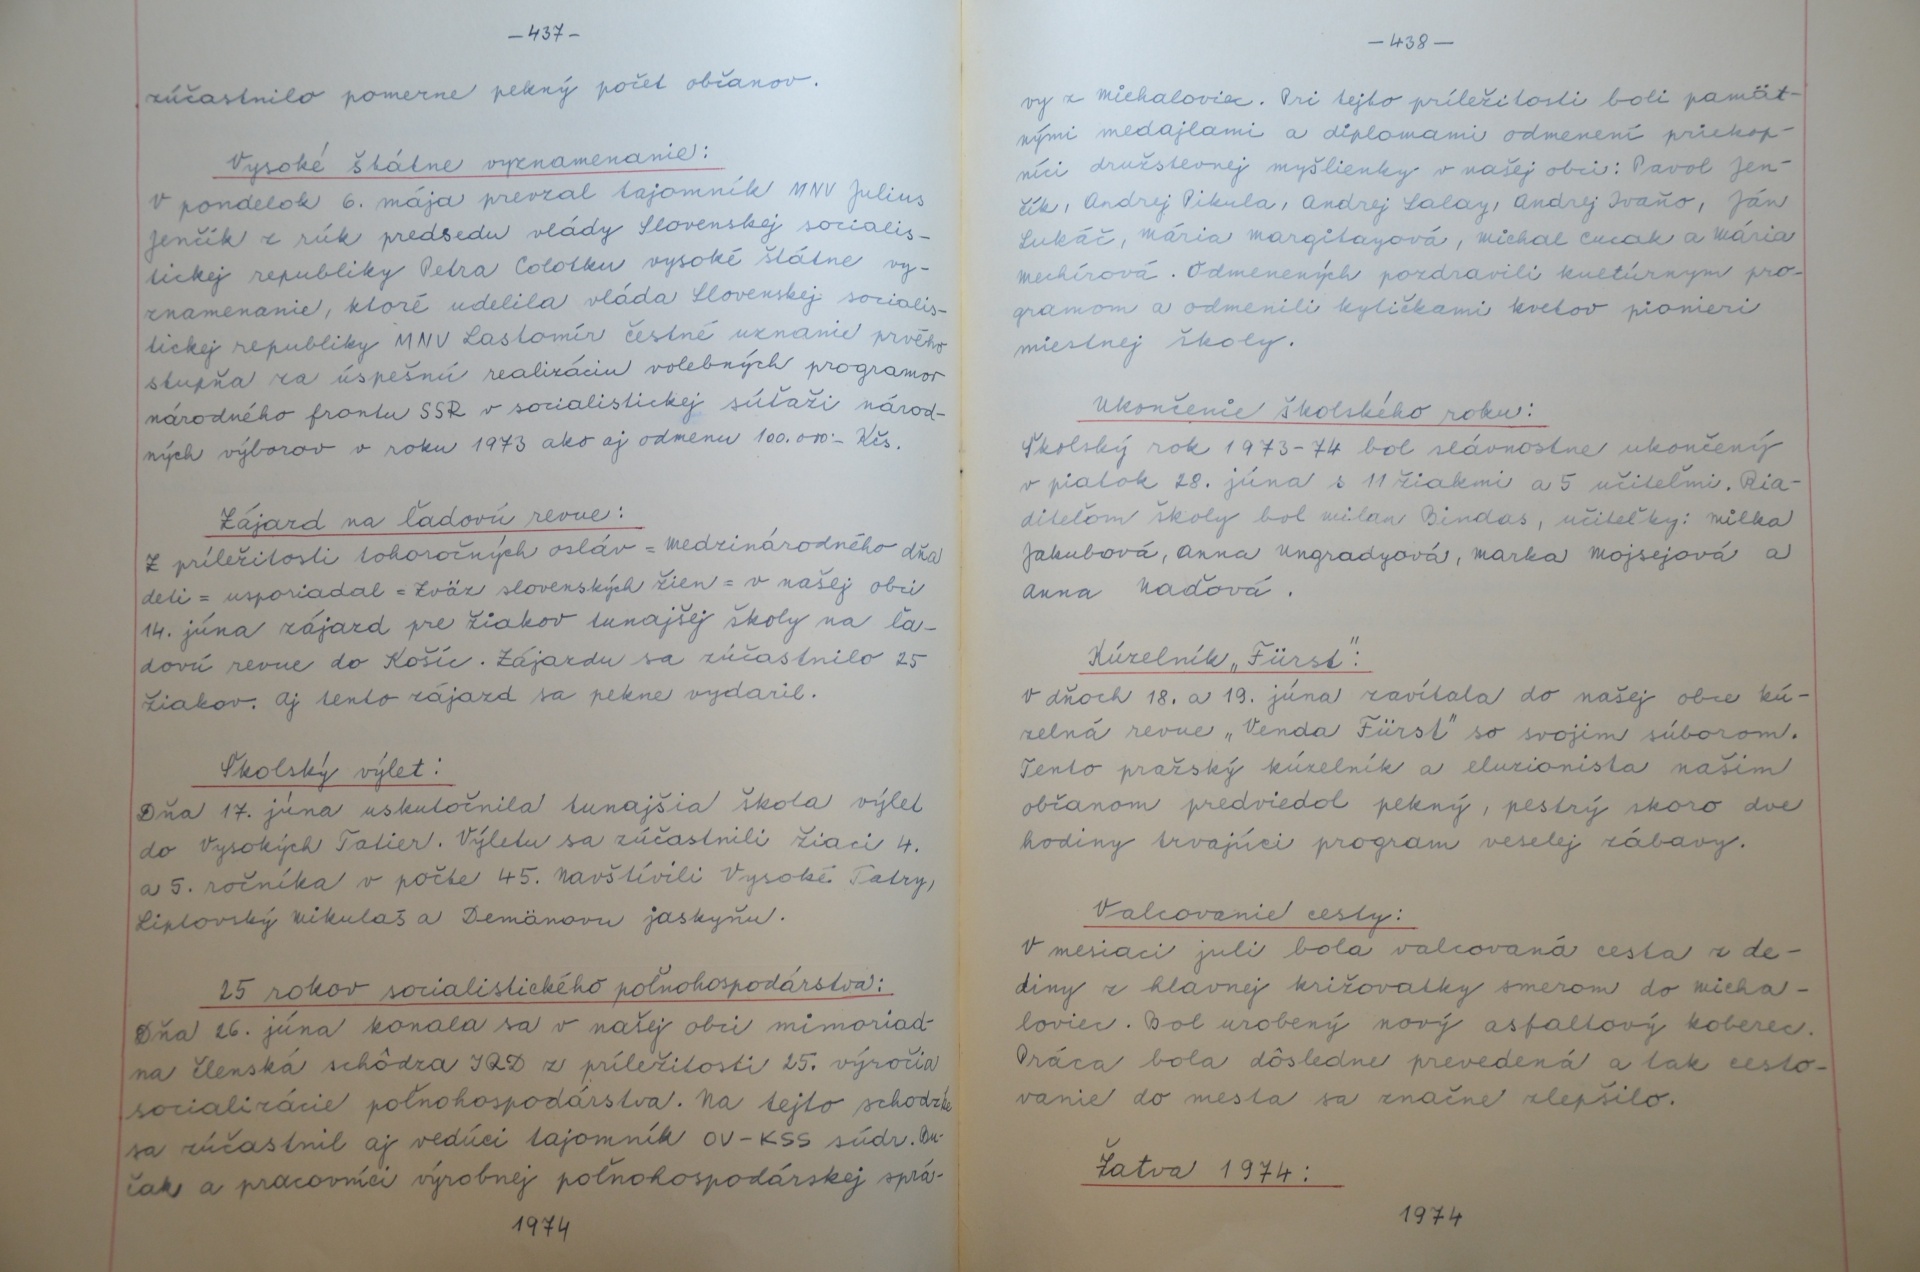 –437–
zúčastnilo pomerne pekný počet občanov.
Vysoké štátne vyznamenanie:
V pondelok 6. mája prevzal tajomník MNV Julius
Jenčík z rúk predsedu vlády Slovenskej socialis-
tickej republiky Petra Colotku vysoké štátne vy-
znamenanie, ktoré udelila vláda Slovenskej socialis-
tickej republiky MNV Lastomír čestné uznanie prvého
stupňa za úspešnú realizáciu volebných programov
národného frontu SSR v socialistickej súťaži národ-
ných výborov v roku 1973 ako aj odmenu 100.000:- Kčs.
Zájazd na ľadovú revue:
Z príležitosti tohoročných osláv = Medzinárodného dňa
deti = usporiadal = Zväz slovenských žien = v našej obci
14. júna zájazd pre žiakov tunajšej školy na ľa-
dovú revue do Košíc. Zájazdu sa zúčastnilo 25
žiakov. Aj tento zájazd sa pekne vydaril.
Školský výlet:
Dňa 17. júna uskutočnila tunajšia škola výlet
do Vysokých Tatier. Výletu sa zúčastnili žiaci 4.
a 5. ročníka v počte 45. Navštívili Vysoké Tatry,
Liptovský Mikulaš a Demänovu jaskyňu.
25 rokov socialistického poľnohospodárstva:
Dňa 26. júna konala sa v našej obci mimoriad-
na členská schôdza JRD z príležitosti 25. výročia
socializácie poľnohospodárstva. Na tejto schodzke
sa zúčastnil aj vedúci tajomník OV-KSS súdr. Bu-
čak a pracovníci výrobnej poľnohospodárskej sprá-
1974
–438–
vy z Michaloviec. Pri tejto príležitosti boli pamät-
nými medajlami a diplomami odmenení priekop-
níci družstevnej myšlienky v našej obci: Pavol Jen-
čík, Andrej Pikula, Andrej Lalay, Andrej Ivaňo, Ján
Lukáč, Mária Margitayová, Michal Cucak a Mária
Mechírová. Odmenených pozdravili kultúrnym pro-
gramom a odmenili kytičkami kvetov pionieri
miestnej školy.
Ukončenie školského roku:
Školský rok 1973-74 bol slávnostne ukončený
v piatok 28. júna s 11 žiakmi a 5 učiteľmi. Ria-
diteľom školy bol Milan Bindas, učiteľky: Milka
Jakubová, Anna Ungradyová, Marka Mojsejová a
Anna Naďová.
Kúzelník „Fürst":
V dňoch 18. a 19. júna zavítala do našej obce kú-
zelná revue „Venda Fürst" so svojim súborom.
Tento pražský kúzelník a eluzionista našim
občanom predviedol pekný, pestrý skoro dve
hodiny trvajúci program veselej zábavy.
Valcovanie cesty:
V mesiaci juli bola valcovaná cesta z de-
diny z hlavnej križovatky smerom do Micha-
loviec. Bol urobený nový asfaltový koberec.
Práca bola dôsledne prevedená a tak cesto-
vanie do mesta sa značne zlepšilo.
Žatva 1974:
1974